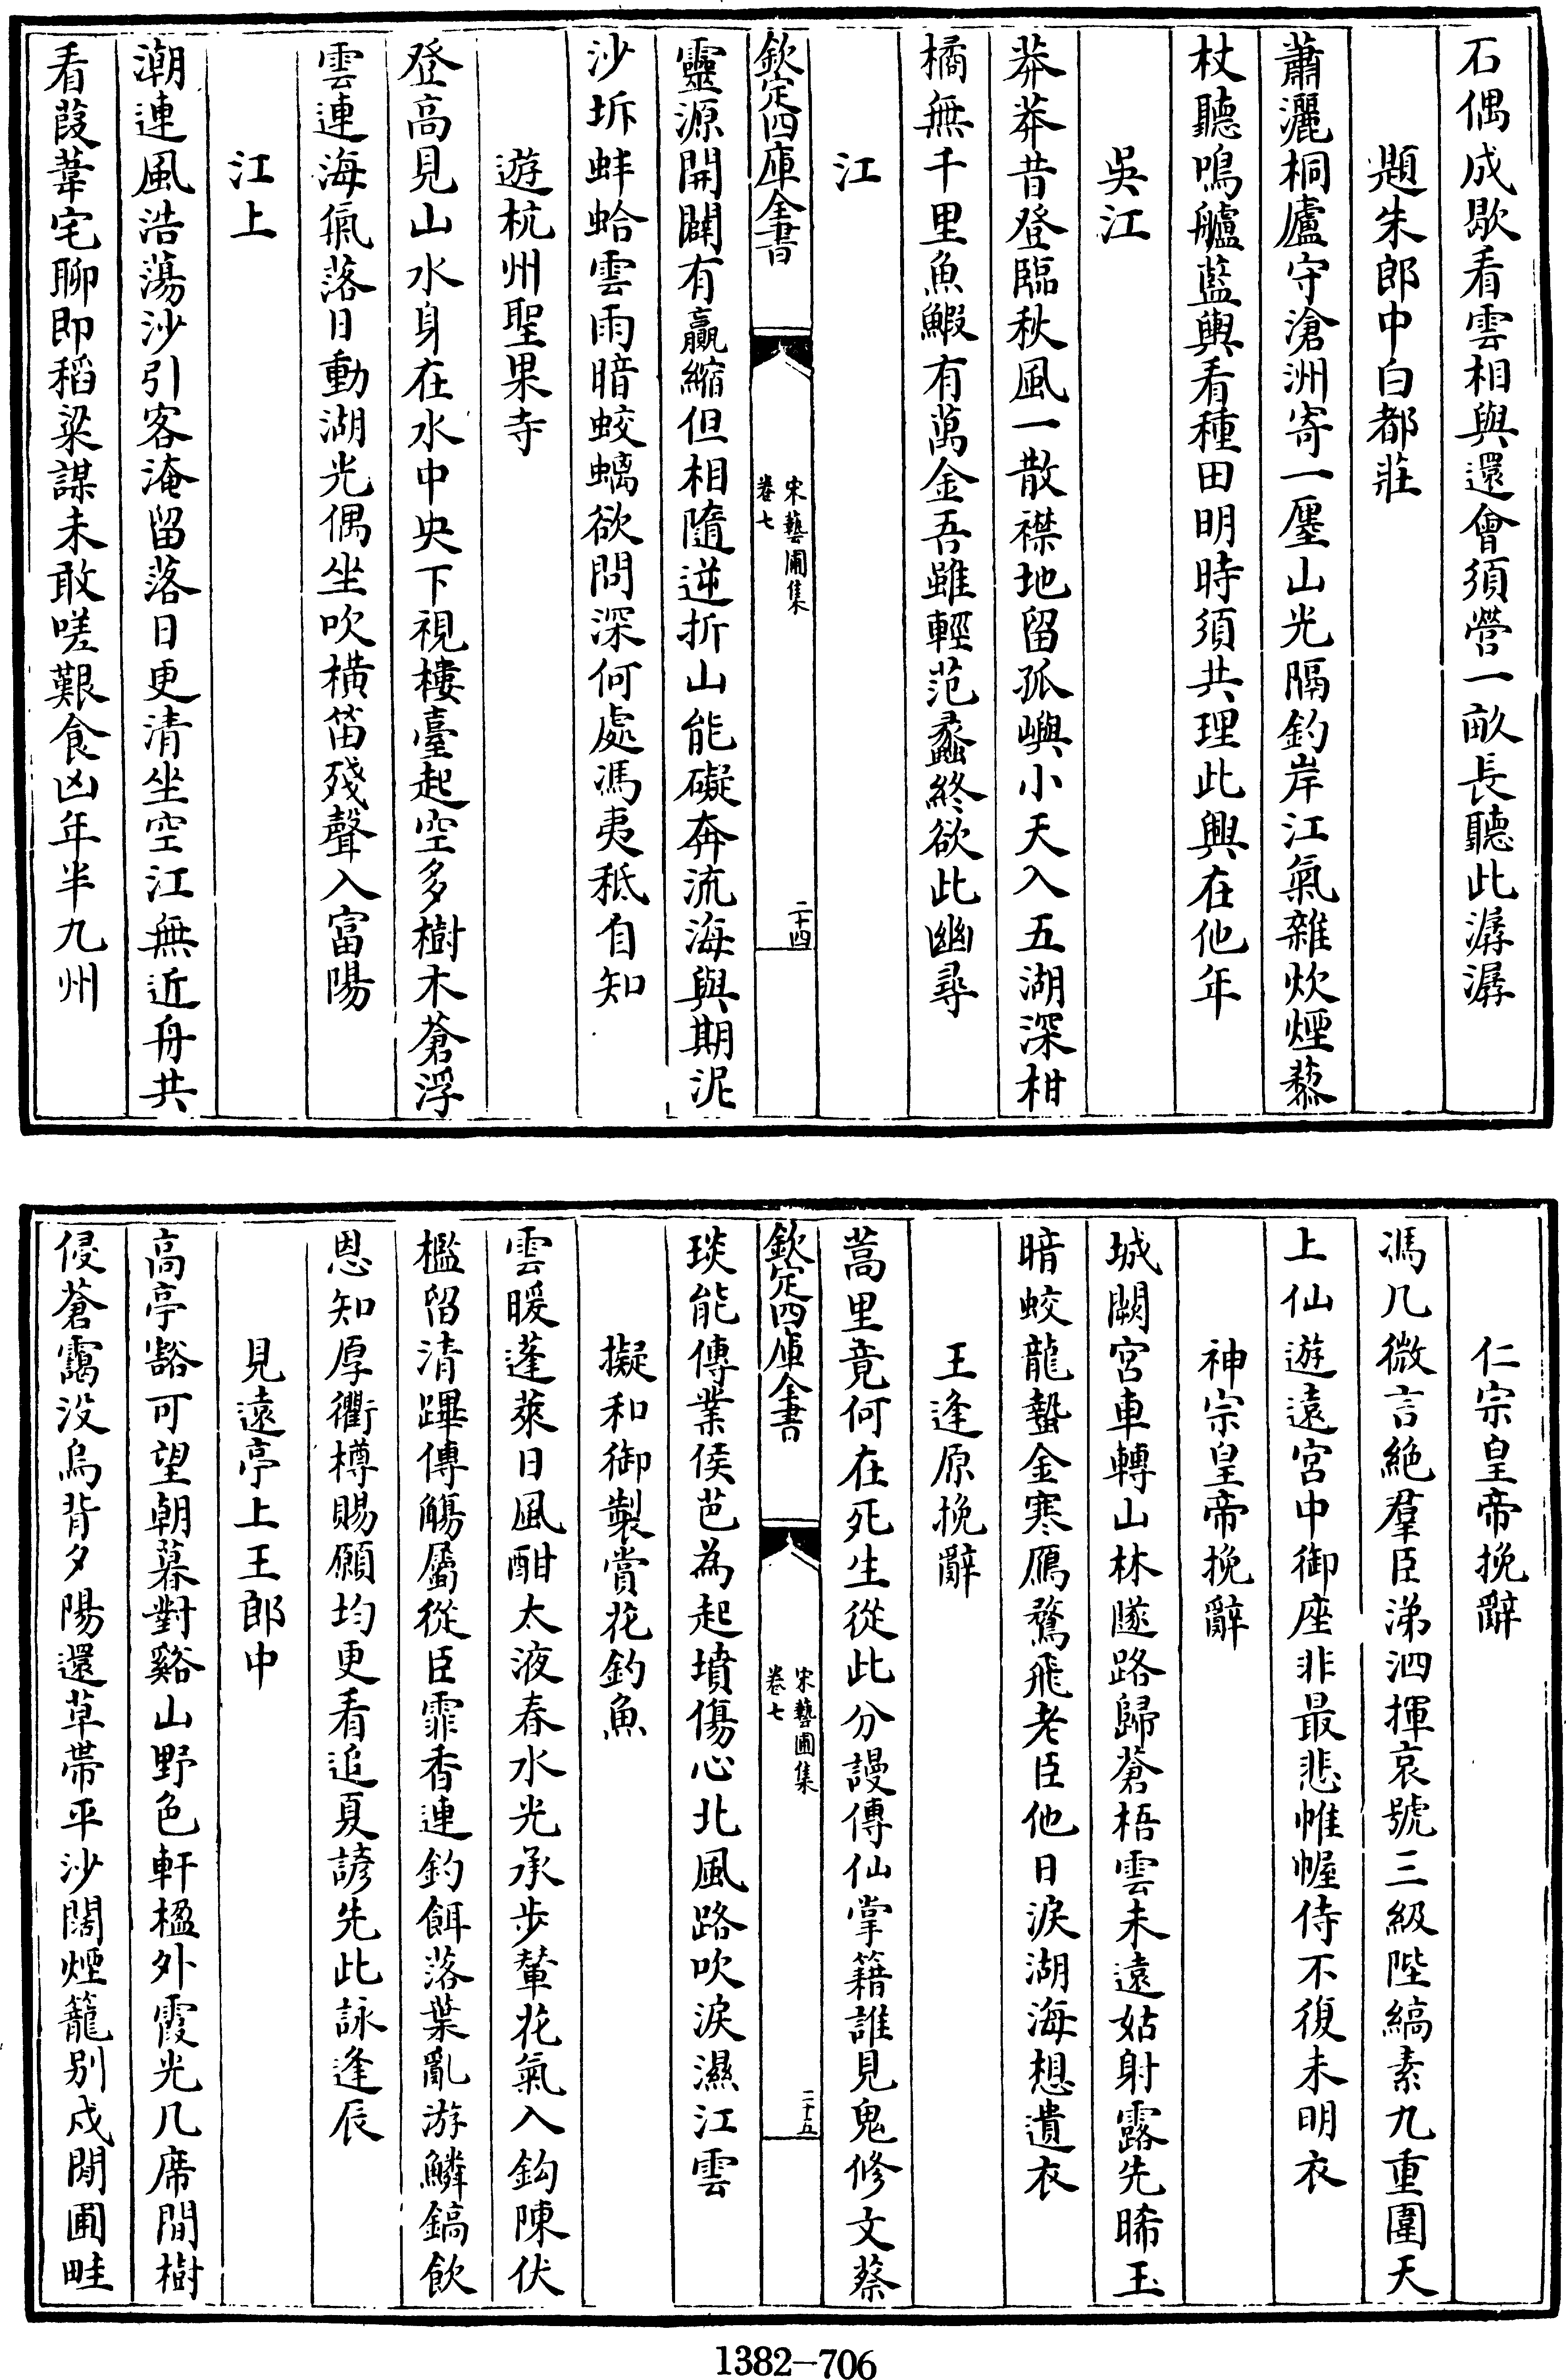 石偶成歇看雲相與還會須營一畝長聽此潺潺
題朱郎中白都莊
蕭灑桐廬守滄洲寄一廛山光隔釣岸江氣雜炊煙藜
杖聽鳴艫藍輿看種田明時須共理此興在他年
吳江
莽莽昔登臨秋風一散襟地留孤嶼小天入五湖深柑
橘無千里魚鰕有萬金吾雖輕范蠡終欲此幽尋
江
欽定四庫全書
宋藝圃集
卷七
二十四
靈源開闢有贏縮但相隨逆折山能礙奔流海與期泥
沙坼蚌蛤雲雨暗蛟螭欲問深何處馮夷秪自知
遊杭州聖果寺
登高見山水身在水中央下視樓臺起空多樹木蒼浮
雲連海氣落日動湖光偶坐吹橫笛殘聲入富陽
江上
潮連風浩蕩沙引客淹留落日更清坐空江無近舟共
看葭葦宅聊即稻粱謀未敢嗟艱食凶年半九州
仁宗皇帝挽辭
馮几微言絶羣臣涕泗揮哀號三級陛縞素九重圍天
上仙遊遠宮中御座非最悲帷幄侍不復未明衣
神宗皇帝挽辭
城闕宮車轉山林隧路歸蒼梧雲未遠姑射露先晞玉
暗蛟龍蟄金寒鴈鶩飛老臣他日淚湖海想遺衣
王逢原挽辭
蒿里竟何在死生從此分謾傳仙掌籍誰見鬼修文蔡
欽定四庫全書
宋藝圃集
卷七
二十五
琰能傳業侯芭為起墳傷心北風路吹淚濕江雲
擬和御製賞花釣魚
雲暖蓬萊日風酣太液春水光承步輦花氣入鈎陳伏
檻留清蹕傳觴屬從臣霏香連釣餌落葉亂游鱗鎬飲
恩知厚衢樽賜願均更看追夏諺先此詠逢辰
見遠亭上王郎中
高亭豁可望朝暮對谿山野色軒楹外霞光几席間樹
侵蒼靄没鳥背夕陽還草帶平沙闊煙籠别戍閒圃畦
1382-706